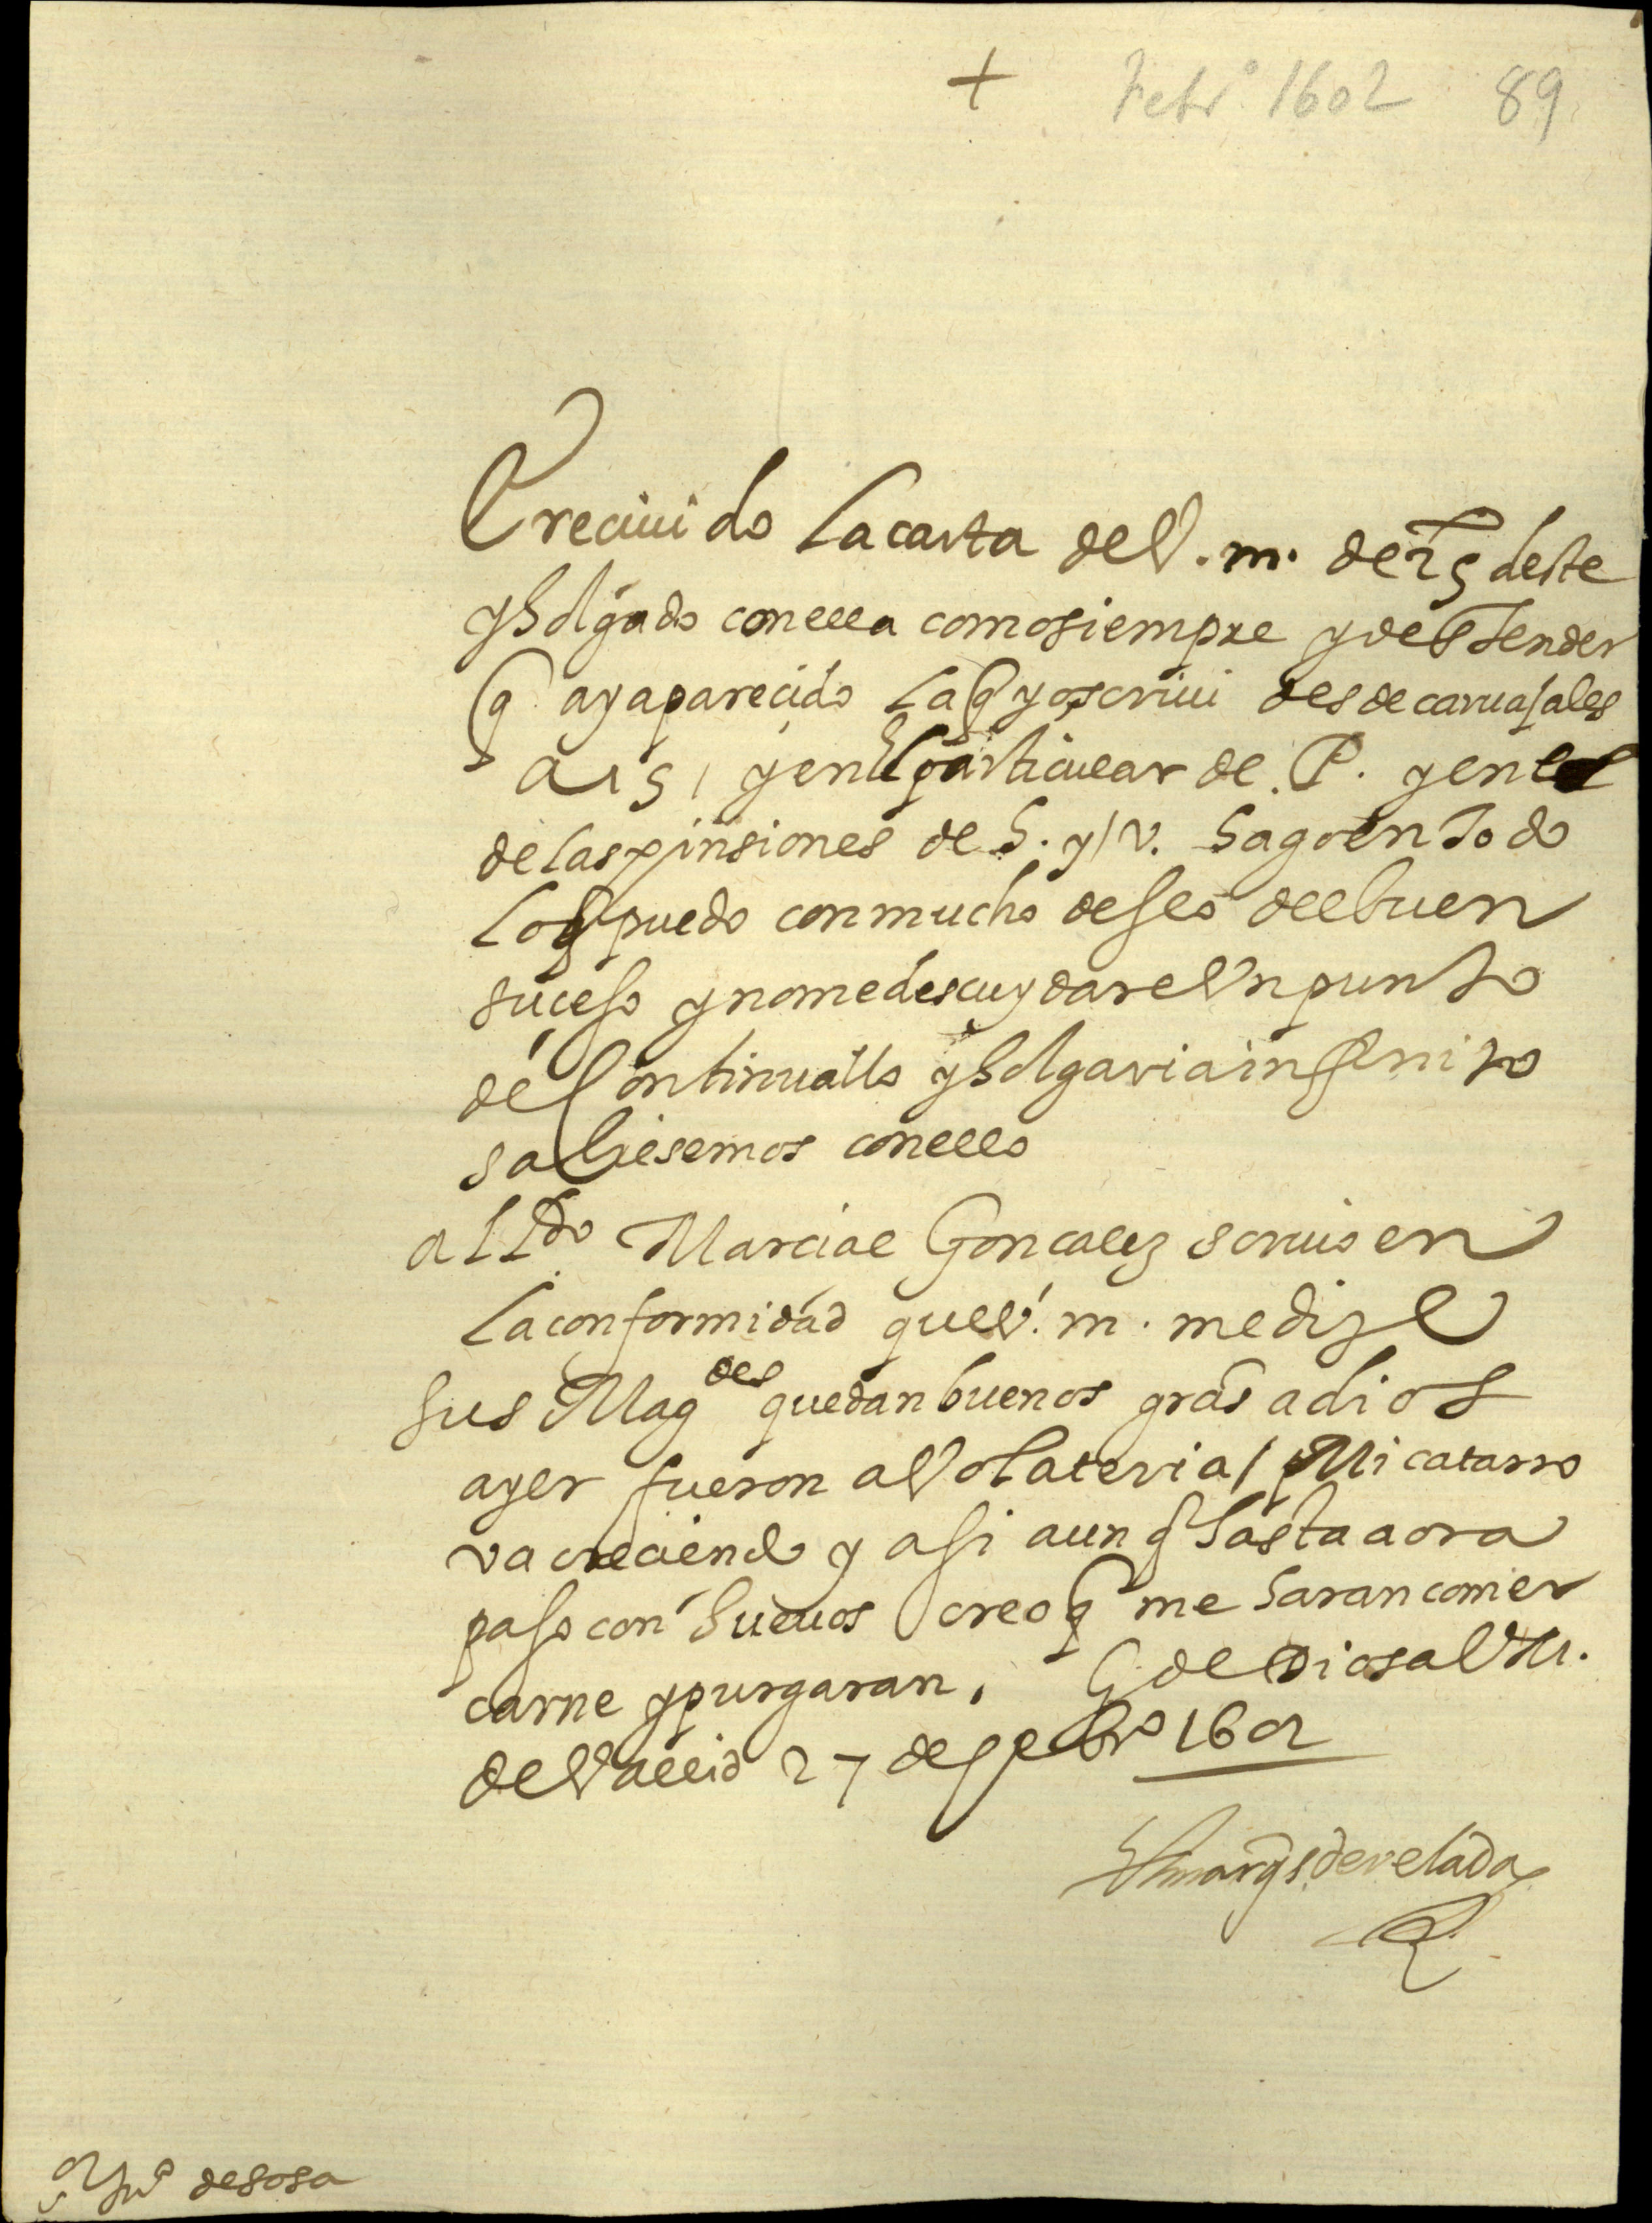 + Febrº 1602 89
E reciuido la carta de V. m. de 25 deste
y holgado con ella como siempre y de entender
q aya parecido la q yo scriui desde caruajales
a 15 / y en el particular de P. y en el
de las pinsiones de S. y / V. hago en todo
lo q puedo con mucho deseo del buen
suceso y no me descuydare Un punto
de Continuallo y holgaria infinito
saliesemos con ello
al Ldo Marcial Goncalez scriuo en
la conformidad que V. m. me dize
sus Magdes quedan buenos gras a dios
ayer fueron a Volateria / Mi catarro
va creciendo y asi aunq hasta aora
paso con hueuos creo q me haran comer
carne y purgaran. Gde Dios a V M.
de Vallid 27 de febro 1602
El marqs de velada
Juº de sosa